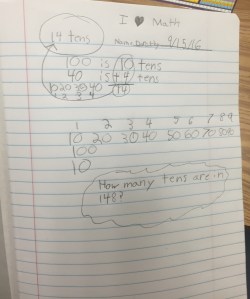 I ♥ Math
14 tens
9/15/16
100 is 10 tens
40 is 4 tens
10 20 30 40 14
1 2 3 4
1 2 3 4 5 6 7 8 9
10 20 30 40 50 60 70 80 90
100
10
How many tens are in
148?